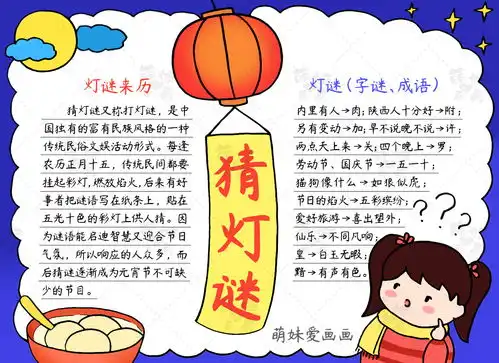 灯谜来历
猜灯谜又称打灯谜，是中
国独有的富有民族风格的一种
传统民俗文娱活动形式。每逢
农历正月十五，传统民间都要
挂起彩灯，燃放焰火，后来有好
事者把谜语写在纸条上，贴在
五光十色的彩灯上供人猜。因
为谜语能启迪智慧又迎合节日
气氛，所以响应的人众多，而
后猜谜逐渐成为元宵节不可缺
少的节目。
猜灯谜
灯谜（字谜、成语）
内里有人→肉；陕西人十分好→附；
另有变动→加；早不说晚不说→许；
两点天上来→关；四个晚上→罗；
劳动节、国庆节→一五一十；
猫狗像什么→如狼似虎；
节日的焰火→五彩缤纷；
爱好旅游→喜出望外；
仙乐→不同凡响；
皇→白玉无瑕；
黯→有声有色。
???
萌妹爱画画